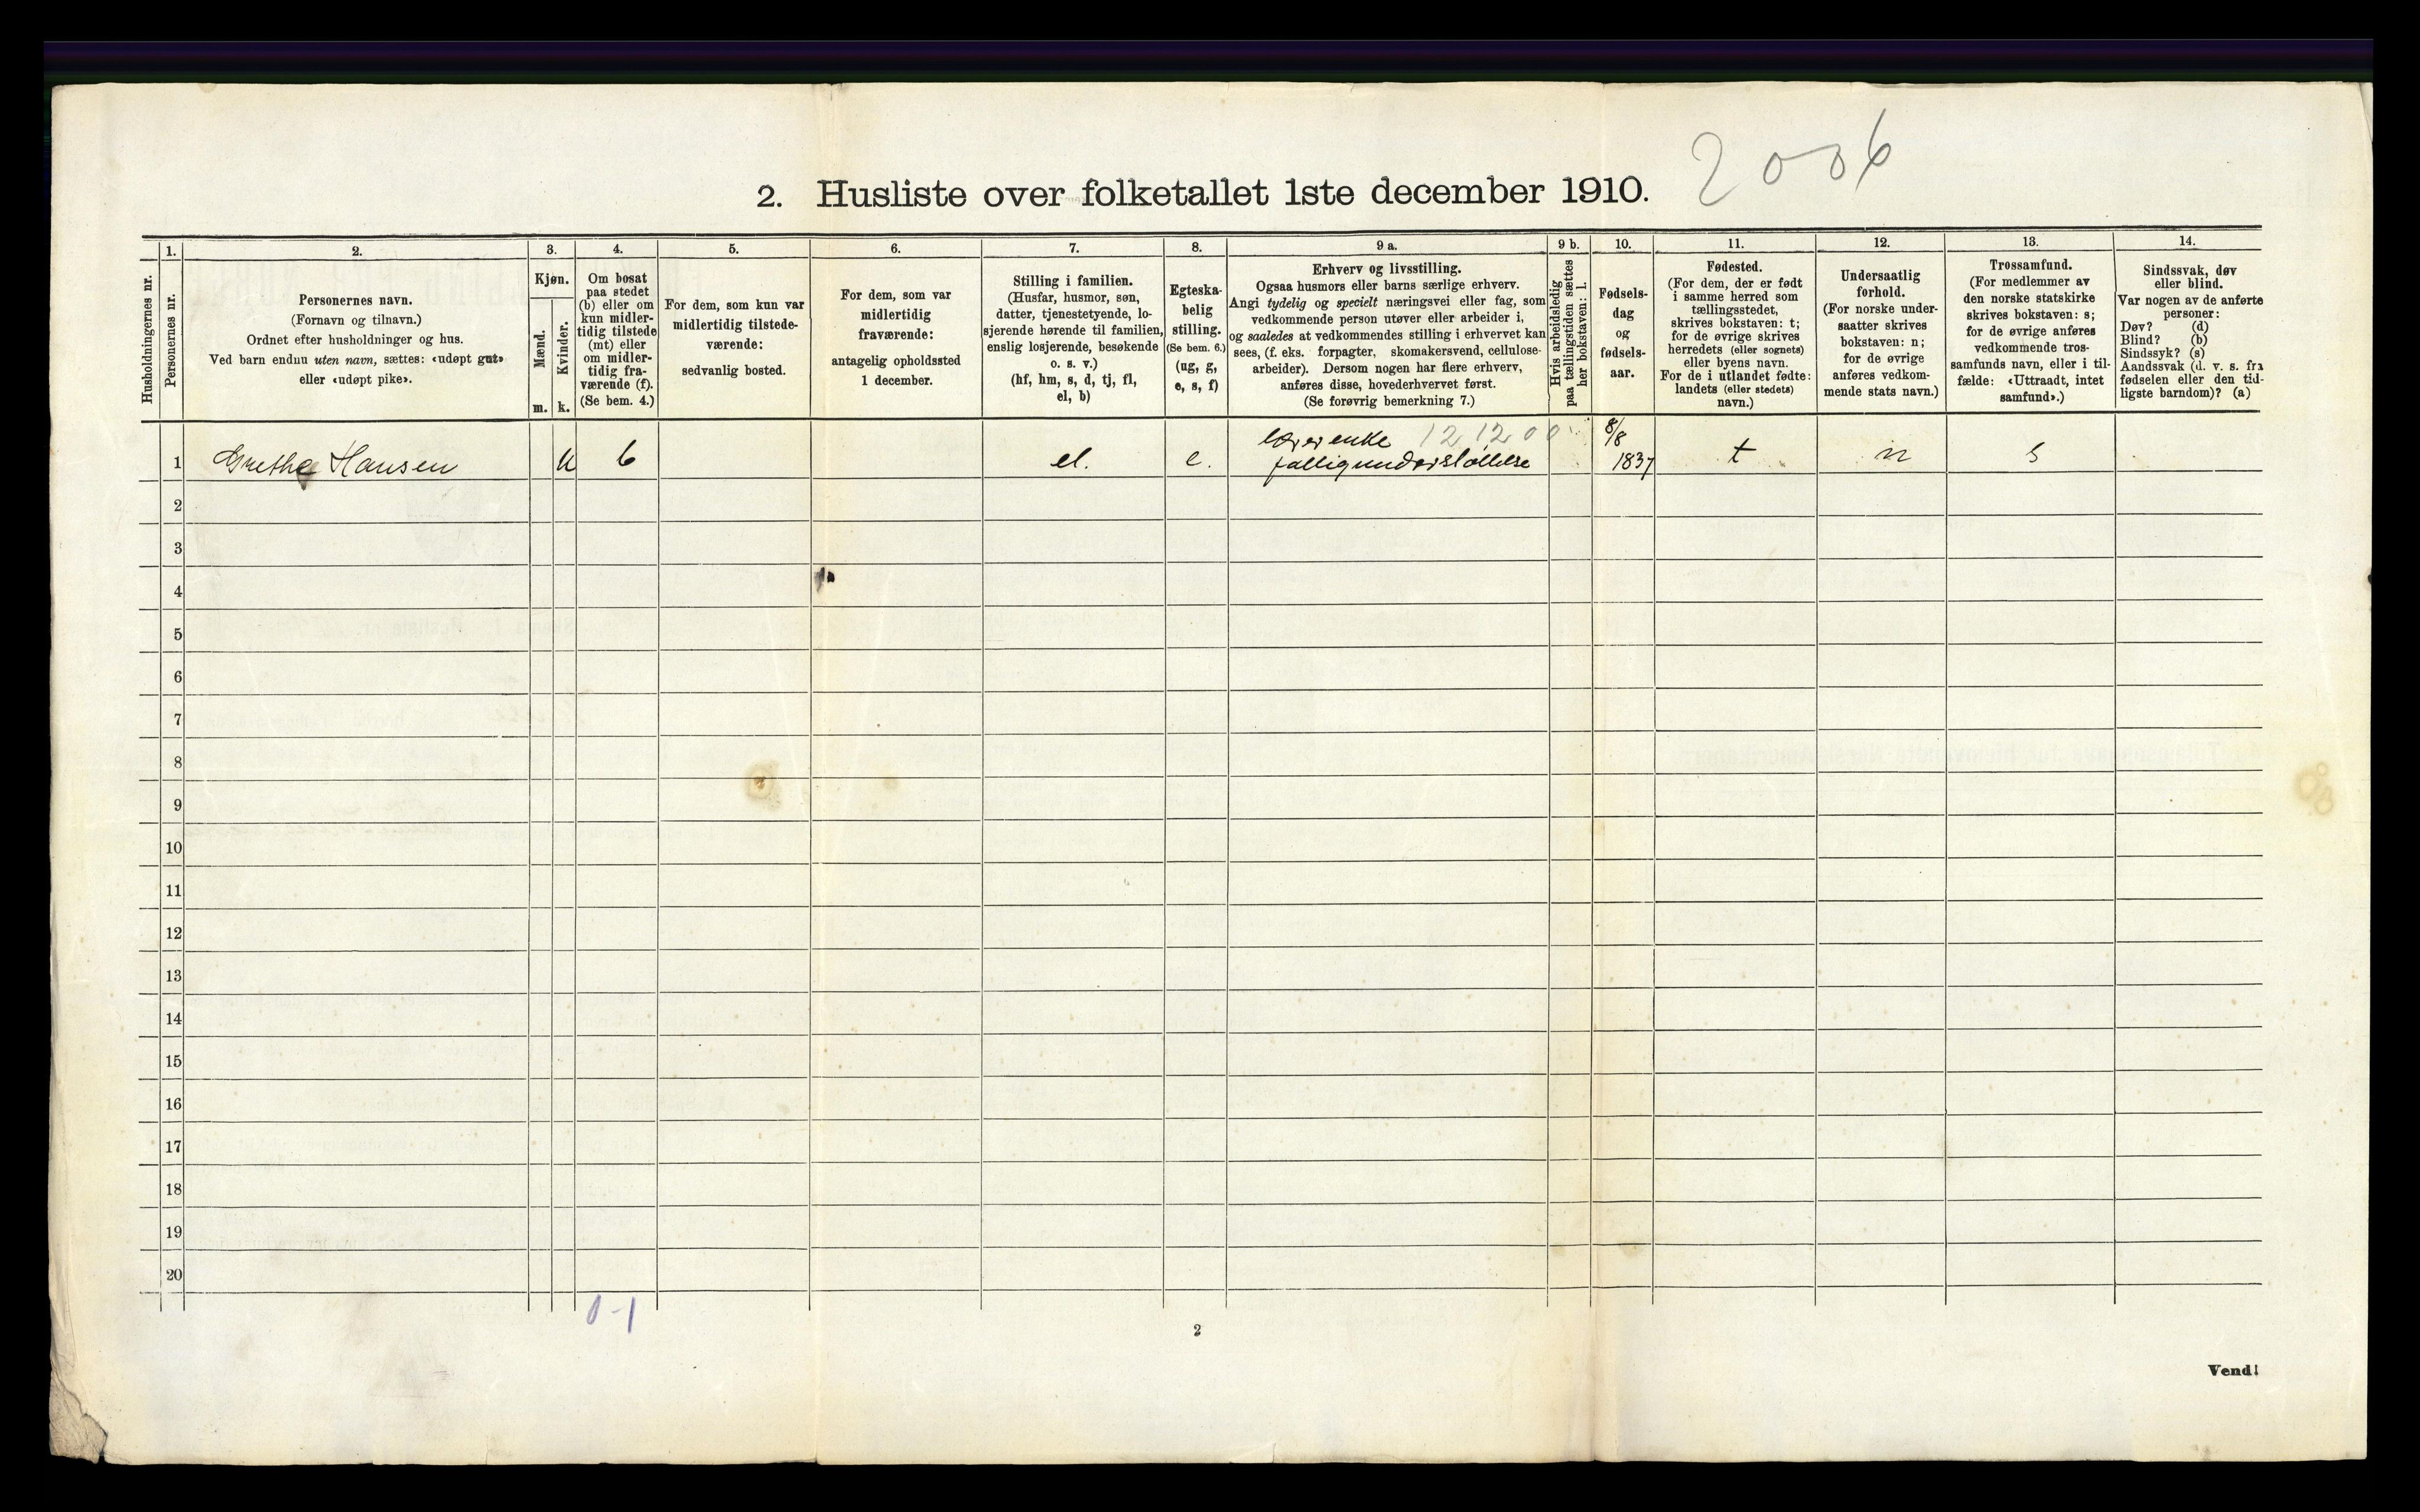 2006
2. Husliste over folketallet 1ste december 1910.
Husholdningernes nr.
1.
Personernes nr.
2.
Personernes navn.
(Fornavn og tilnavn.)
Ordnet efter husholdninger og hus.
Ved barn endnu uten navn, sættes: «udøpt gut»
eller «udøpt pike».
3.
Kjøn.
Mænd.
m.
Kvinder.
k.
4.
Om bosat
paa stedet
(b) eller om
kun midler-
tidig tilstede
(mt) eller
om midler-
tidig fra-
værende (f).
(Se bem. 4.)
5.
For dem, som kun var
midlertidig tilstede-
værende:
sedvanlig bosted.
6.
For dem, som var
midlertidig
fraværende:
antagelig opholdssted
1 december.
7.
Stilling i familien.
(Husfar, husmor, søn,
datter, tjenestetyende, lo-
sjerende hørende til familien,
enslig losjerende, besøkende
o. s. v.)
(hf, hm, s, d, tj, fl,
el, b)
8.
Egteska-
belig
stilling.
(Se bem. 6.)
(ug, g,
e, s, f)
9 a.
Erhverv og livsstilling.
Ogsaa husmors eller barns særlige erhverv.
Angi tydelig og specielt næringsvei eller fag, som
vedkommende person utøver eller arbeider i,
og saaledes at vedkommendes stilling i erhvervet kan
sees, (f. eks. forpagter, skomakersvend, cellulose-
arbeider). Dersom nogen har flere erhverv,
anføres disse, hovederhvervet først.
(Se forøvrig bemerkning 7.)
9 b.
Hvis arbeidsledig
paa tællingstiden sættes
her bokstaven: l.
10.
Fødsels-
dag
og
fødsels-
aar.
11.
Fødested.
(For dem, der er født
i samme herred som
tællingsstedet,
skrives bokstaven: t;
for de øvrige skrives
herredets (eller sognets)
eller byens navn.
For de i utlandet fødte:
landets (eller stedets)
navn.)
12.
Undersaatlig
forhold.
(For norske under-
saatter skrives
bokstaven: n;
for de øvrige
anføres vedkom-
mende stats navn.)
13.
Trossamfund.
(For medlemmer av
den norske statskirke
skrives bokstaven: s;
for de øvrige anføres
vedkommende tros-
samfunds navn, eller i til-
fælde: «Uttraadt, intet
samfund».)
14.
Sindssvak, døv
eller blind.
Var nogen av de anførte
personer:
Døv? (d)
Blind? (b)
Sindssyk? (s)
Aandssvak (d. v. s. fra
fødselen eller den tid-
ligste barndom)? (a)
1 Grethe Hansen k b el. e. 8/8 1837 t n s
lærerenke 12,1200
fattigunderstøttelse
2
3
4
5
6
7
8
9
10
11
12
13
14
15
16
17
18
19
20
0-1
2
Vend!